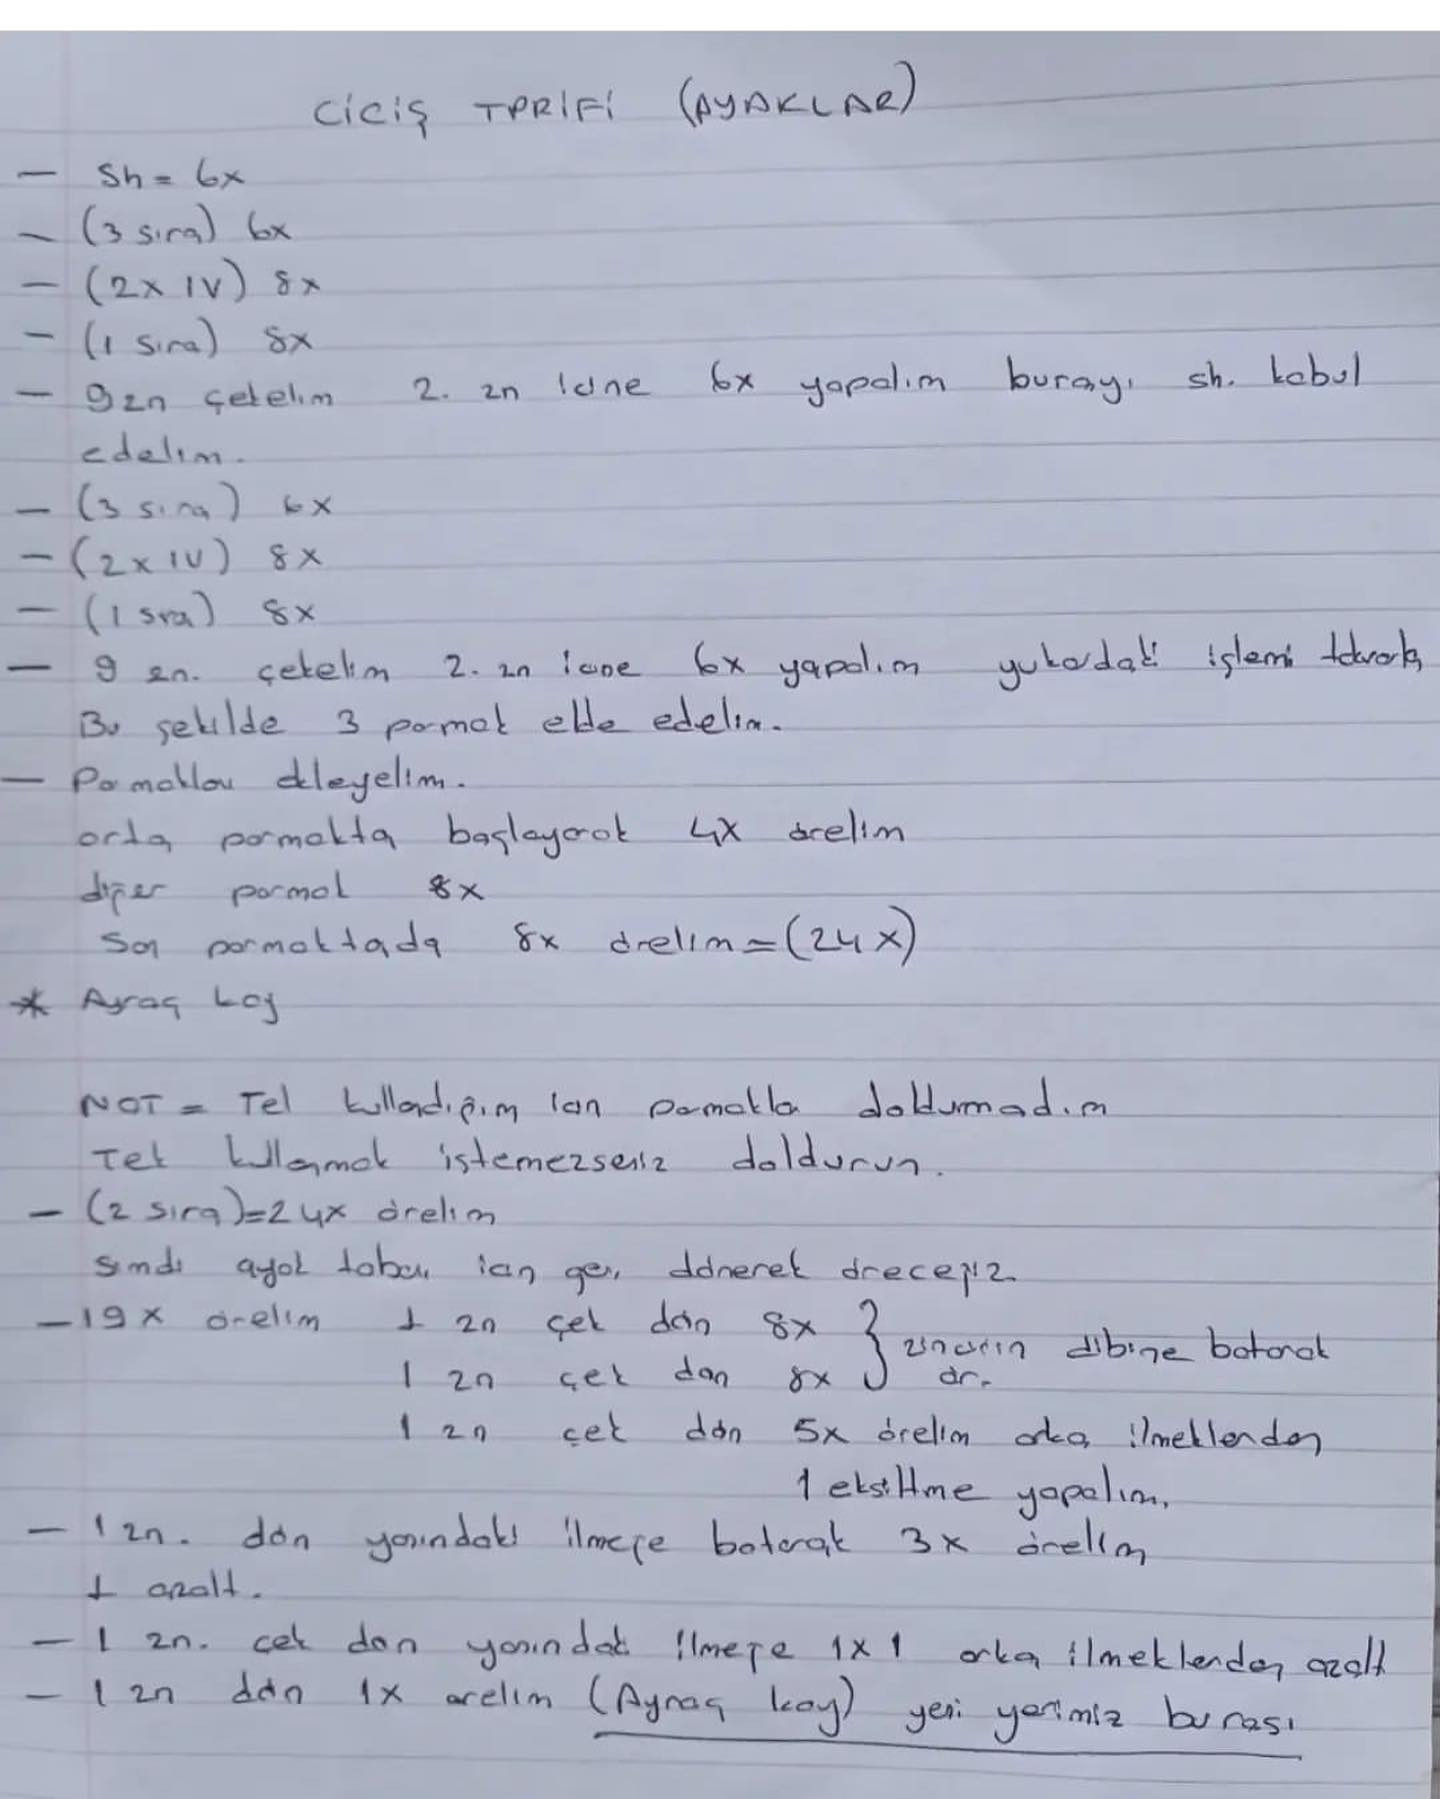 CİCİŞ TARİFİ (AYAKLAR)
— Sh = 6x
— (3 sıra) 6x
— (2x IV) 8x
— (1 sıra) 8x
— 9 zn çekelim 2. zn icine 6x yapalım burayı sh. kabul
edelim.
— (3 sıra) 6x
— (2x IV) 8x
— (1 sıra) 8x
— 9 zn. çekelim 2. zn icine 6x yapalım yukardaki işlemi tekrarla
Bu şekilde 3 parmak elde edelim.
— Parmakları ekleyelim.
orta parmakta başlayarak 4x örelim
diğer parmak 8x
Son parmaktada 8x örelim = (24x)
* Ayraç koy
NOT = Tel kullandığım için parmakla doldurmadım
Tel kullanmak istemezseniz doldurun.
— (2 sıra)=24x örelim
Şimdi ayak tabanı için geri dönerek öreceğiz.
— 19x örelim 1 zn çek dön 8x } zincirin dibine batarak
1 zn çek dön 8x ör.
1 zn çek dön 5x örelim arka ilmeklerden
1 eksiltme yapalım.
— 1 zn. dön yanındaki ilmeğe batarak 3x örelim
1 azalt.
— 1 zn. çek dön yanındaki ilmeğe 1x 1 arka ilmeklerden azalt
— 1 zn dön 1x örelim (Ayraç koy) yeni yerimiz burası